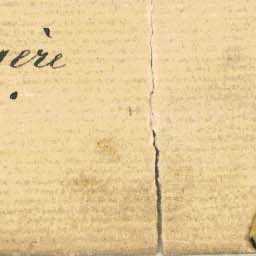 gère